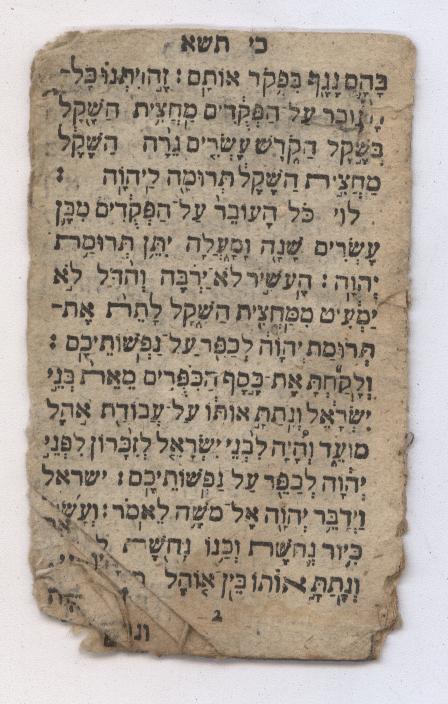 כי תשא
בָּהֶ֛ם נֶ֖גֶף בִּפְקֹ֥ד אוֹתָֽם׃ זֶ֣ה׀יִתְּנ֗וּ כׇּל־
עוֹבר עַל הַפְּקֻדִים מַחֲצִית הַשֶּׁקֶל
בְּשֶׁקֶל הַקֹּדֶשׁ עֶשְׂרִים גֵּרָה הַשֶּׁקֶל
מַחֲצִית הַשֶּׁקֶל תְּרוּמָה לַיהוָה :
לוי כֹּל הָעוֹבֵר עַל הַפְּקֻדִים מִבֶּן
עֶשְׂרִים שָׁנָה וָמָעְלָה יִתֵּן תְּרוּמַת
יְהוָה : הֶעָשִׁיר לֹא יַרְבֶּה וְהַדַּל לֹא
יַמְעִיט מִמַּחֲצִית הַשָּׁקֶל לָתֵת אֶת־
תְּרוּמַת יְהוָה לְכַפֵּר עַל נַפְשׁוֹתֵיכֶם :
וְלָקַחְתָּ אֶת כֶּסֶף הַכִּפֻּרִים מֵאֵת בְּנֵי
יִשְׂרָאֵל וְנָתַתָּ אוֹתוֹ עַל עֲבוֹדַת אֹהֶל
מוֹעֵד וְהָיָה לִבְנֵי יִשְׂרָאֵל לְזִכָּרוֹן לִפְנֵי
יְהוָה לְכַפֵּר עַל נַפְשׁוֹתֵיכֶם : ישראל
וַיְדַבֵּר יְהוָה אֶל מֹשֶׁה לֵּאמֹר : וְעָשִׂ
כִּיּוֹר נְחֹשֶׁת וְכַנּוֹ נְחֹשֶׁת
וְנָתַתָּ אוֹתוֹ בֵּין אֹוהֶל
2